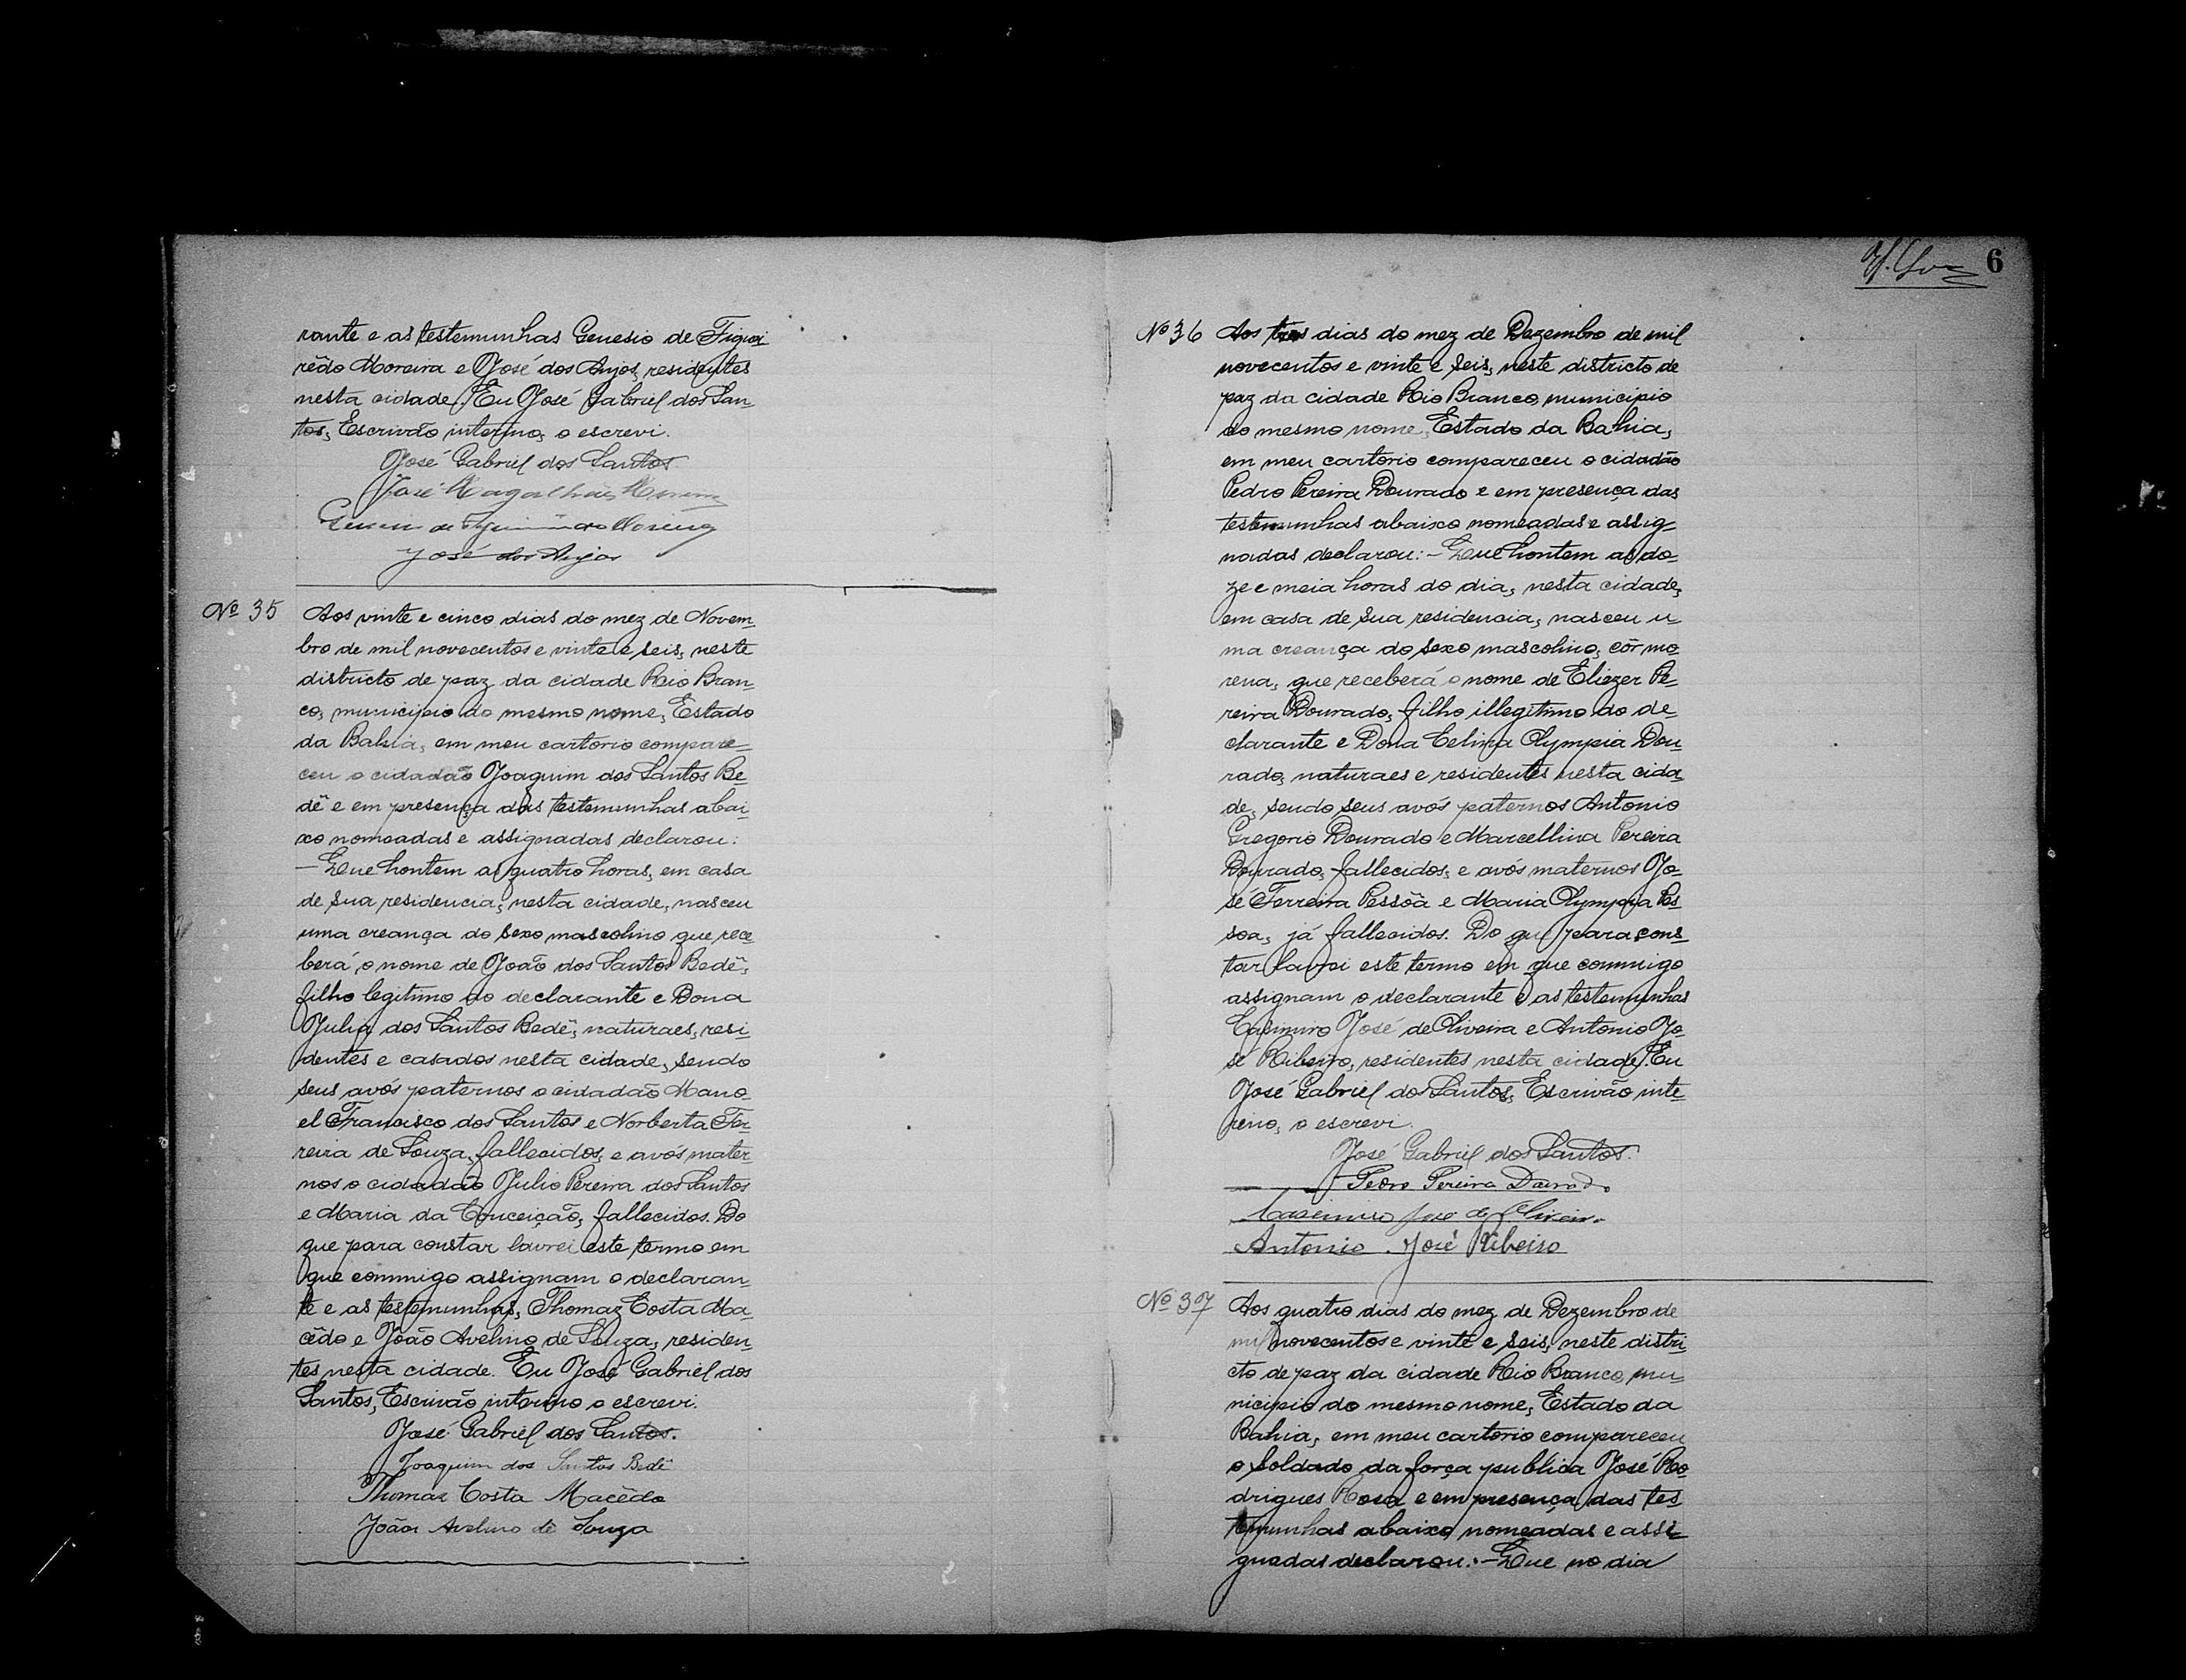 rante e as testemunhas Genesio de Figuei
rêdo Moreira e José dos Anjos, residentes
nesta cidade. Eu José Gabriel dos San-
tos, Escrivão interino, o escrevi.
José Gabriel dos Santos
José Magalhães
José dos Anjos
Nº 35 Aos vinte e cinco dias do mez de Novem-
bro de mil novecentos e vinte e seis, neste
districto de paz da cidade Rio Bran-
co, municipio do mesmo nome, Estado
da Bahia, em meu cartorio compare-
ceu o cidadão Joaquim dos Santos Be-
dê e em presença das testemunhas abai-
xo nomeadas e assignadas declarou:
— Que hontem as quatro horas, em casa
de sua residencia, nesta cidade, nasceu
uma creança do sexo mascolino que rece-
berá o nome de João dos Santos Bedê,
filho legitimo do declarante e Dona
Julia dos Santos Bedê, naturaes, resi-
dentes e casados nesta cidade, sendo
seus avós paternos o cidadão Mano-
el Francisco dos Santos e Norberta Fer-
reira de Souza, fallecidos, e avós mater-
nos o cidadão Julio Pereira dos Santos
e Maria da Conceição, fallecidos. Do
que para constar lavrei este termo em
que commigo assignam o declaran-
te e as testemunhas, Thomaz Costa Ma-
cêdo e João Avelino de Souza, residen-
tes nesta cidade. Eu José Gabriel dos
Santos, Escrivão interino o escrevi.
José Gabriel dos Santos.
Joaquim dos Santos Bedê
Thomaz Costa Macêdo
João Avelino de Souza
6
Nº 36 Aos tres dias do mez de Dezembro de mil
novecentos e vinte e seis, neste districto de
paz da cidade Rio Branco, municipio
do mesmo nome, Estado da Bahia,
em meu cartorio compareceu o cidadão
Pedro Pereira Dourado e em presença das
testemunhas abaixo nomeadas e assig-
nadas declarou: — Que hontem as do-
ze e meia horas do dia, nesta cidade,
em casa de sua residencia, nasceu u-
ma creança do sexo mascolino, côr mo-
rena, que receberá o nome de Eliezer Pe-
reira Dourado, filho illegitimo do de-
clarante e Dona Celina Olympia Dou-
rado, naturaes e residentes nesta cida-
de, sendo seus avós paternos Antonio
Gregorio Dourado e Marcellina Pereira
Dourado, fallecidos, e avós maternos Jo-
sé Ferreira Pessôa e Maria Olympia Pes-
soa, já fallecidos. Do que para cons-
tar lavrei este termo em que commigo
assignam o declarante e as testemunhas
Casimiro José de Oliveira e Antonio Jo-
sé Ribeiro, residentes nesta cidade. Eu
José Gabriel dos Santos, Escrivão inte-
rino, o escrevi.
José Gabriel dos Santos.
Pedro Pereira Dourado
Casemiro José de Oliveira
Antonio José Ribeiro
Nº 37 Aos quatro dias do mez de Dezembro de
mil novecentos e vinte e seis, neste distri-
cto de paz da cidade Rio Branco, mu-
nicipio do mesmo nome, Estado da
Bahia, em meu cartorio compareceu
o soldado da força publica José Ro-
drigues Rosa e em presença das tes-
temunhas abaixo nomeadas e assi-
gnadas declarou: — Que no dia